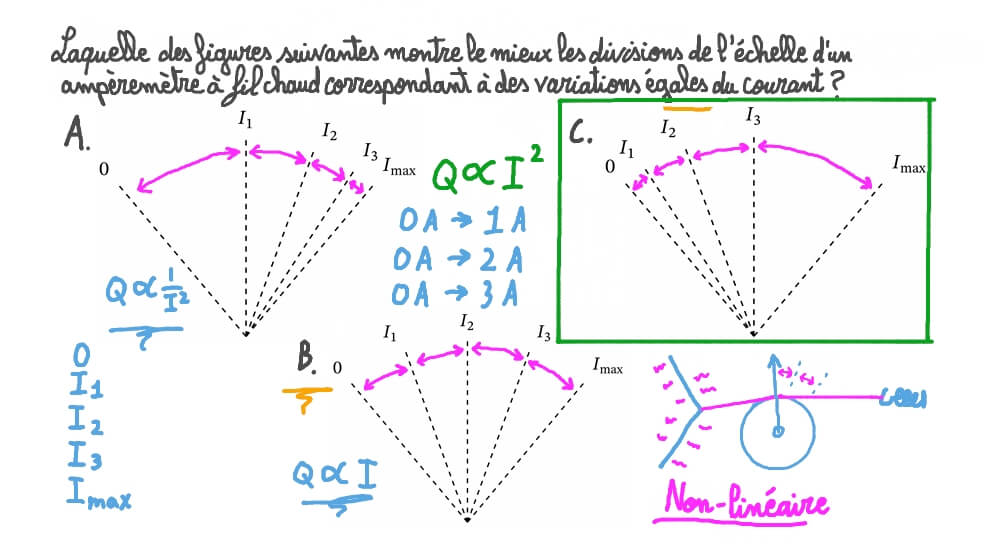 Laquelle des figures suivantes montre le mieux les divisions de l'échelle d'un
ampèremètre à fil chaud correspondant à des variations égales du courant ?
A.
0
I₁
I₂
I₃
Imax
Q∝1/I²
Q∝I²
0A → 1A
0A → 2A
0A → 3A
C.
0
I₁
I₂
I₃
Imax
0
I₁
I₂
I₃
Imax
B.
0
I₁
I₂
I₃
Imax
Q∝I
Non-linéaire